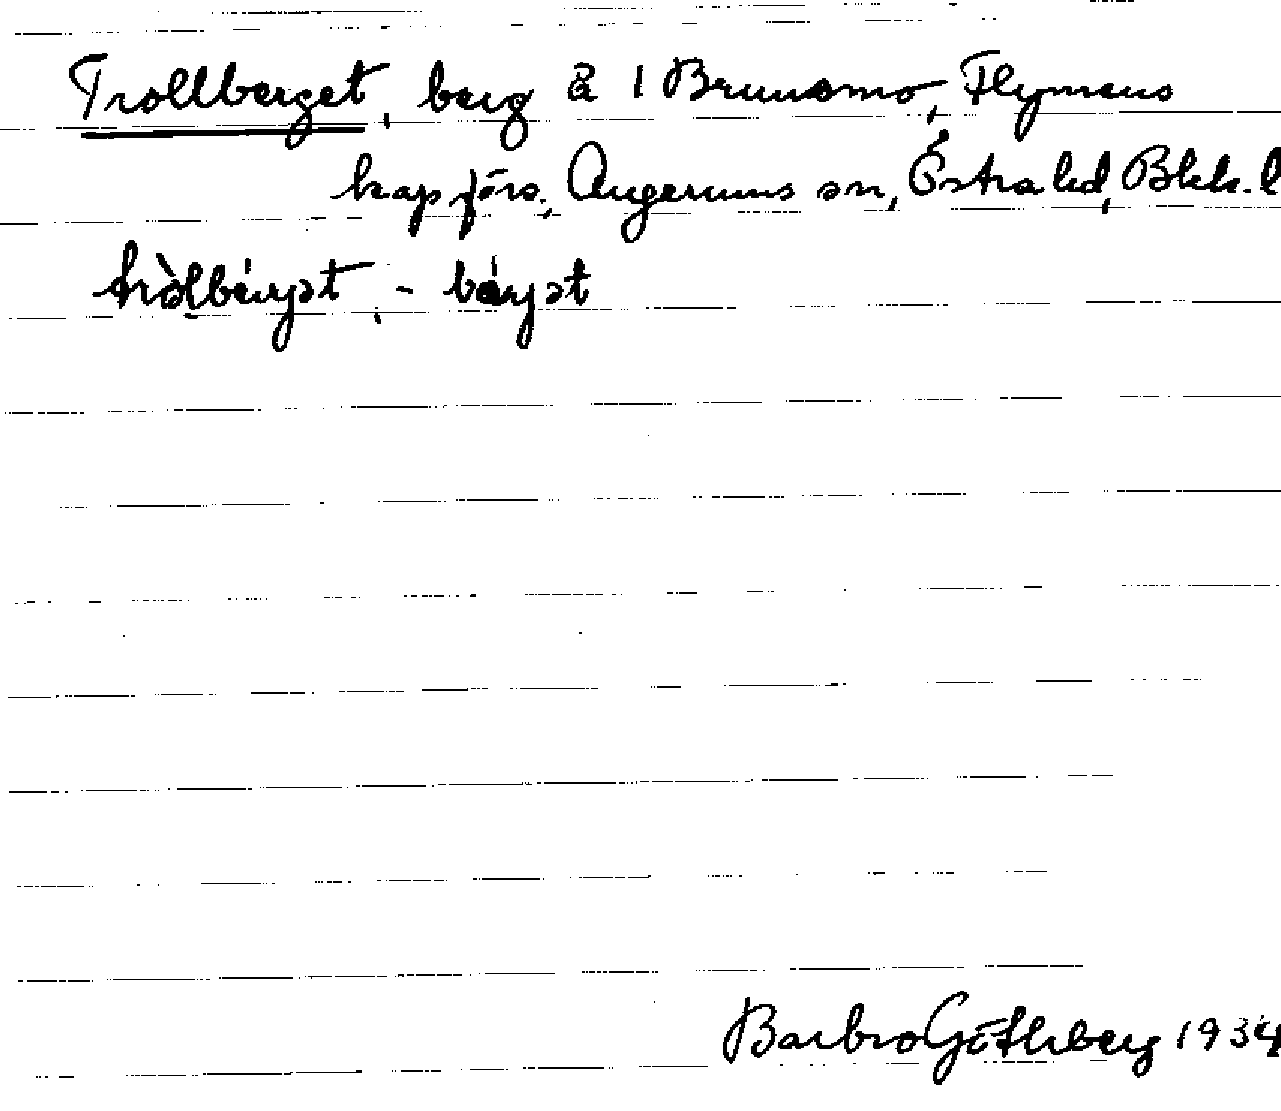 Trollberget, berg å 1 Brunsmo, Flymens
kap.förs., Augerums sn, Östra hd,Blek. l
tròlbærjət, - bærjət
Barbro Götherberg 1934